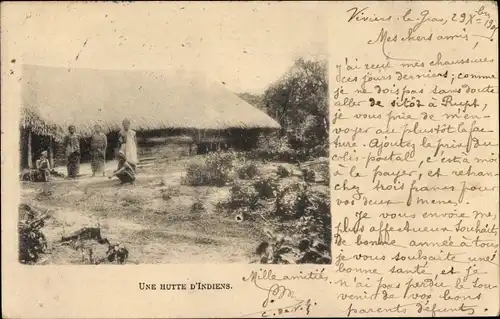 Viviers-le-Gras, 29 Xbre 1901
Mes chers amis,
J'ai reçu mes chaussures
ces jours derniers; comme
je ne dois pas sans doute
aller de sitôt à Rupt,
je vous prie de m'en-
voyer au plus tôt la fac-
ture. Ajoutez le prix du
colis-postal, c'est à moi
à le payer, et retran-
chez trois francs pour
vos deux
Je vous envoie mes
plus affectueux souhaits
de bonne année à tous
je vous souhaite une
bonne santé, et je
n'ai pas perdu le sou-
venir de vos bons
parents défunts.
UNE HUTTE D'INDIENS.
Mille amitiés